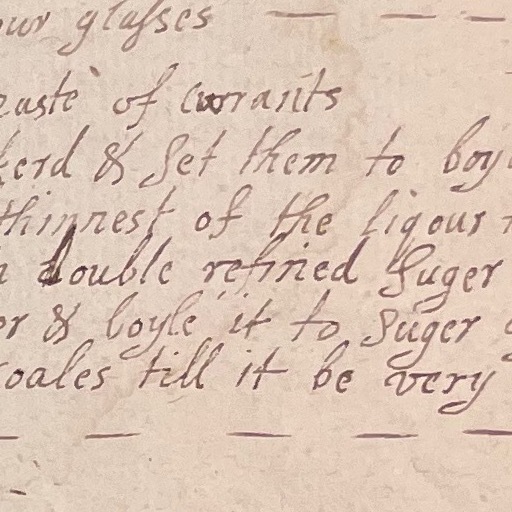 our glasses
paste of currants
kerd & set them to boyl
thinnest of the liqour
double refined Suger
or & boyle it to Suger
coales till it be very